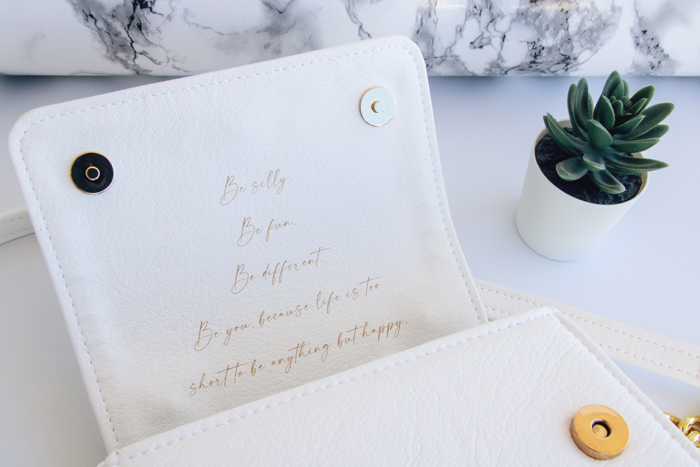 Be silly.
Be fun.
Be different.
Be you, because life is too
short to be anything but happy.